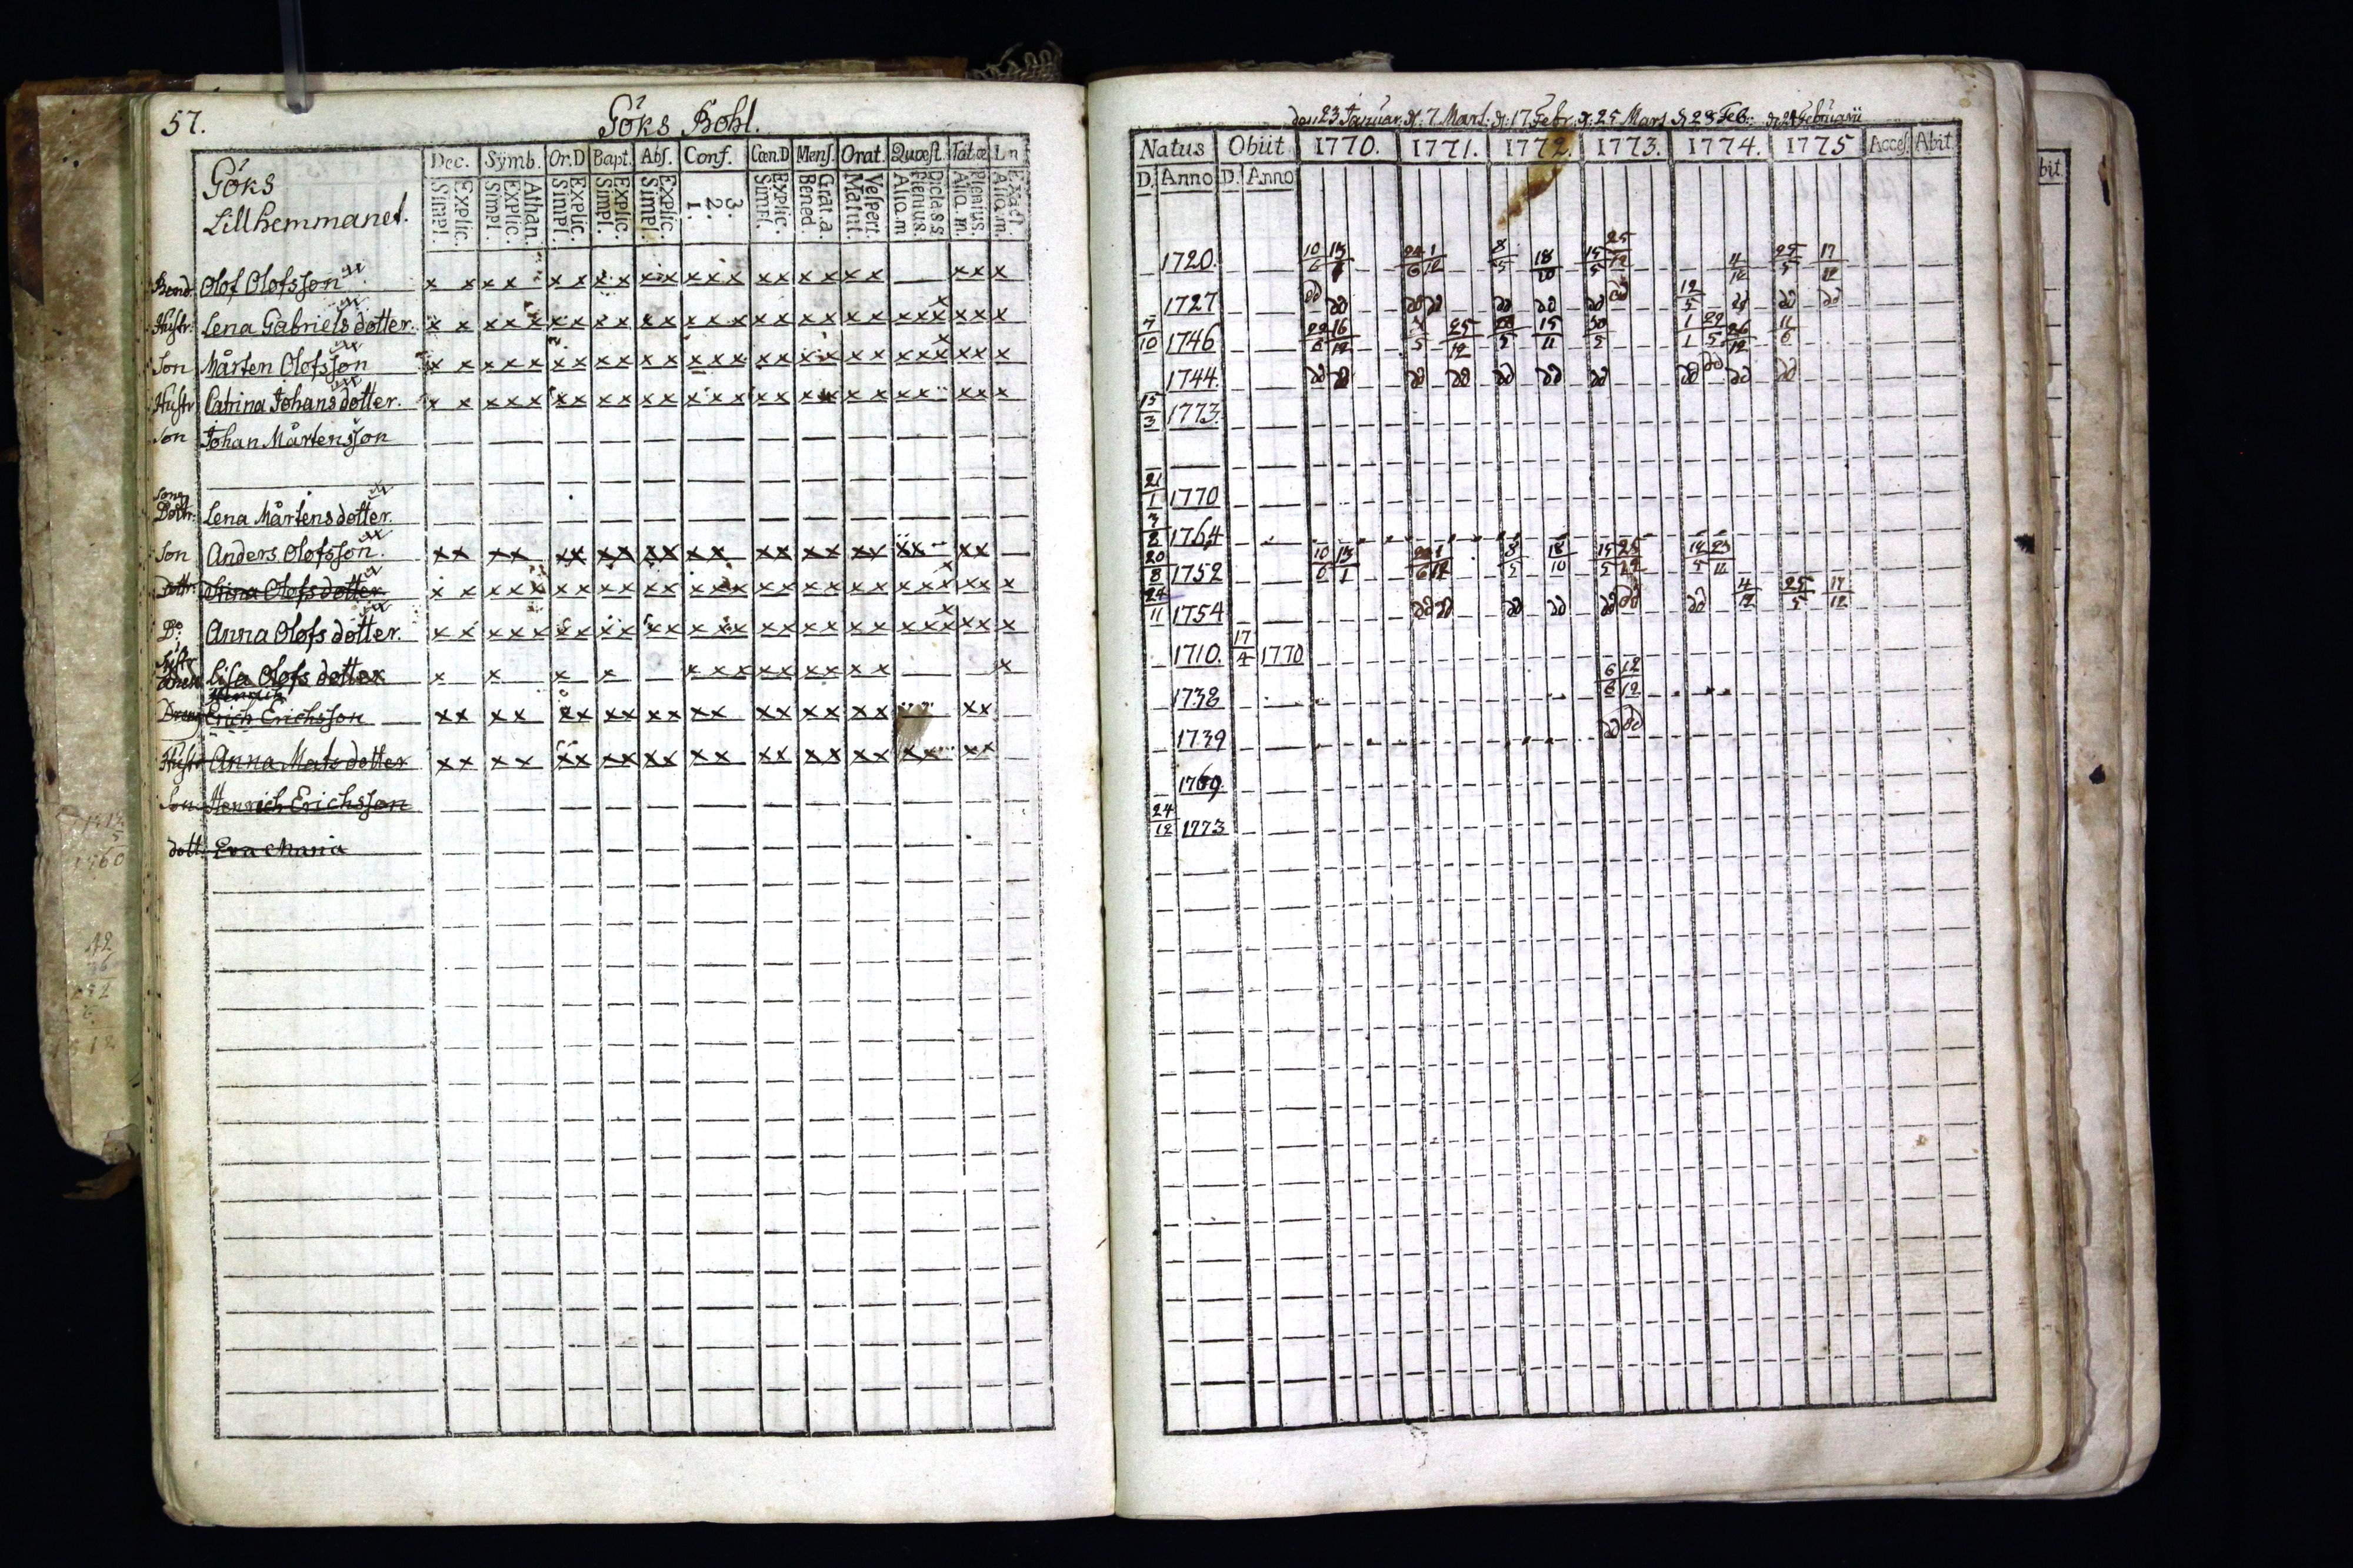 57.
Göks Bohl.
Göks
Lillhemmanet.
Dec. Symb. Or.D Bapt. Abs. Conf. Cœn.D Mens. Orat. Quæst. Tab.œ
Simpl. Explic. Simpl. Explic. Athan. Simpl. Explic. Simpl. Explic. Simpl. Explic. 1. 2. 3. Simpl. Explic. Bened. Grat.a. Matut. Vespert. Aliq.m Plenius. Dicta s.s. Aliq.m. Plenius. Aliq.m. Exact.
Bond Olof Olofsson x x x x x x x x x x x x x x x x x x x x x x x
Hustr. Lena Gabriels dotter. x x x x x x x x x x x x x x x x x x x x x x x x x
Son Mårten Olofsson x x x x x x x x x x x x x x x x x x x x x x x x x
Hustr Catrina Johans dotter. x x x x x x x x x x x x x x x x x x x x x x x x
Son Johan Mårtensson
Sons
Dottr. Lena Mårtens dotter.
Son Anders Olofsson. x x x x x x x x x x x x x x x x x x x x x x
Dottr. Stina Olofs dotter. x x x x x x x x x x x x x x x x x x x x x x x x x
Do. Anna Olofs dotter. x x x x x x x x x x x x x x x x x x x x x x x x x
Lisa Olofs dotter x x x x x x x x x x x x x
Dreng Erich Erichsson x x x x x x x x x x x x x x x x x x x x
Hustr Anna Mats dotter x x x x x x x x x x x x x x x x x x x x x x
Son Henrich Erichsson
dott. Eva Maria
den 23 Januar. d. 7 Mart. d. 17 Febr. d. 25 Mars d 28 Feb. d. 24 Februarii
Natus Obiit 1770. 1771. 1772. 1773. 1774. 1775 Acces. Abit
D. Anno D. Anno
1720. 10/6 13/1 24/6 1/12 8/5 18/10 15/5 25/12 4/12 25/5 17/12
1727 do do do do do do do do 12/5 do do do
7/10 1746 16/12 25/12 15/11 30/5 1/1 29/5 26/12 11/6
1744. do do do do do do do do do do do
15/3 1773.
21/1 1770
3/2 1764
20/8 1752 10/6 13/1 8/5 18/10 15/5 25/12
24/11 1754 do do do do do do do 4/12 25/5 17/12
1710. 17/4 1770
1738 6/6 12/12
1739 do do
1769.
24/12 1773